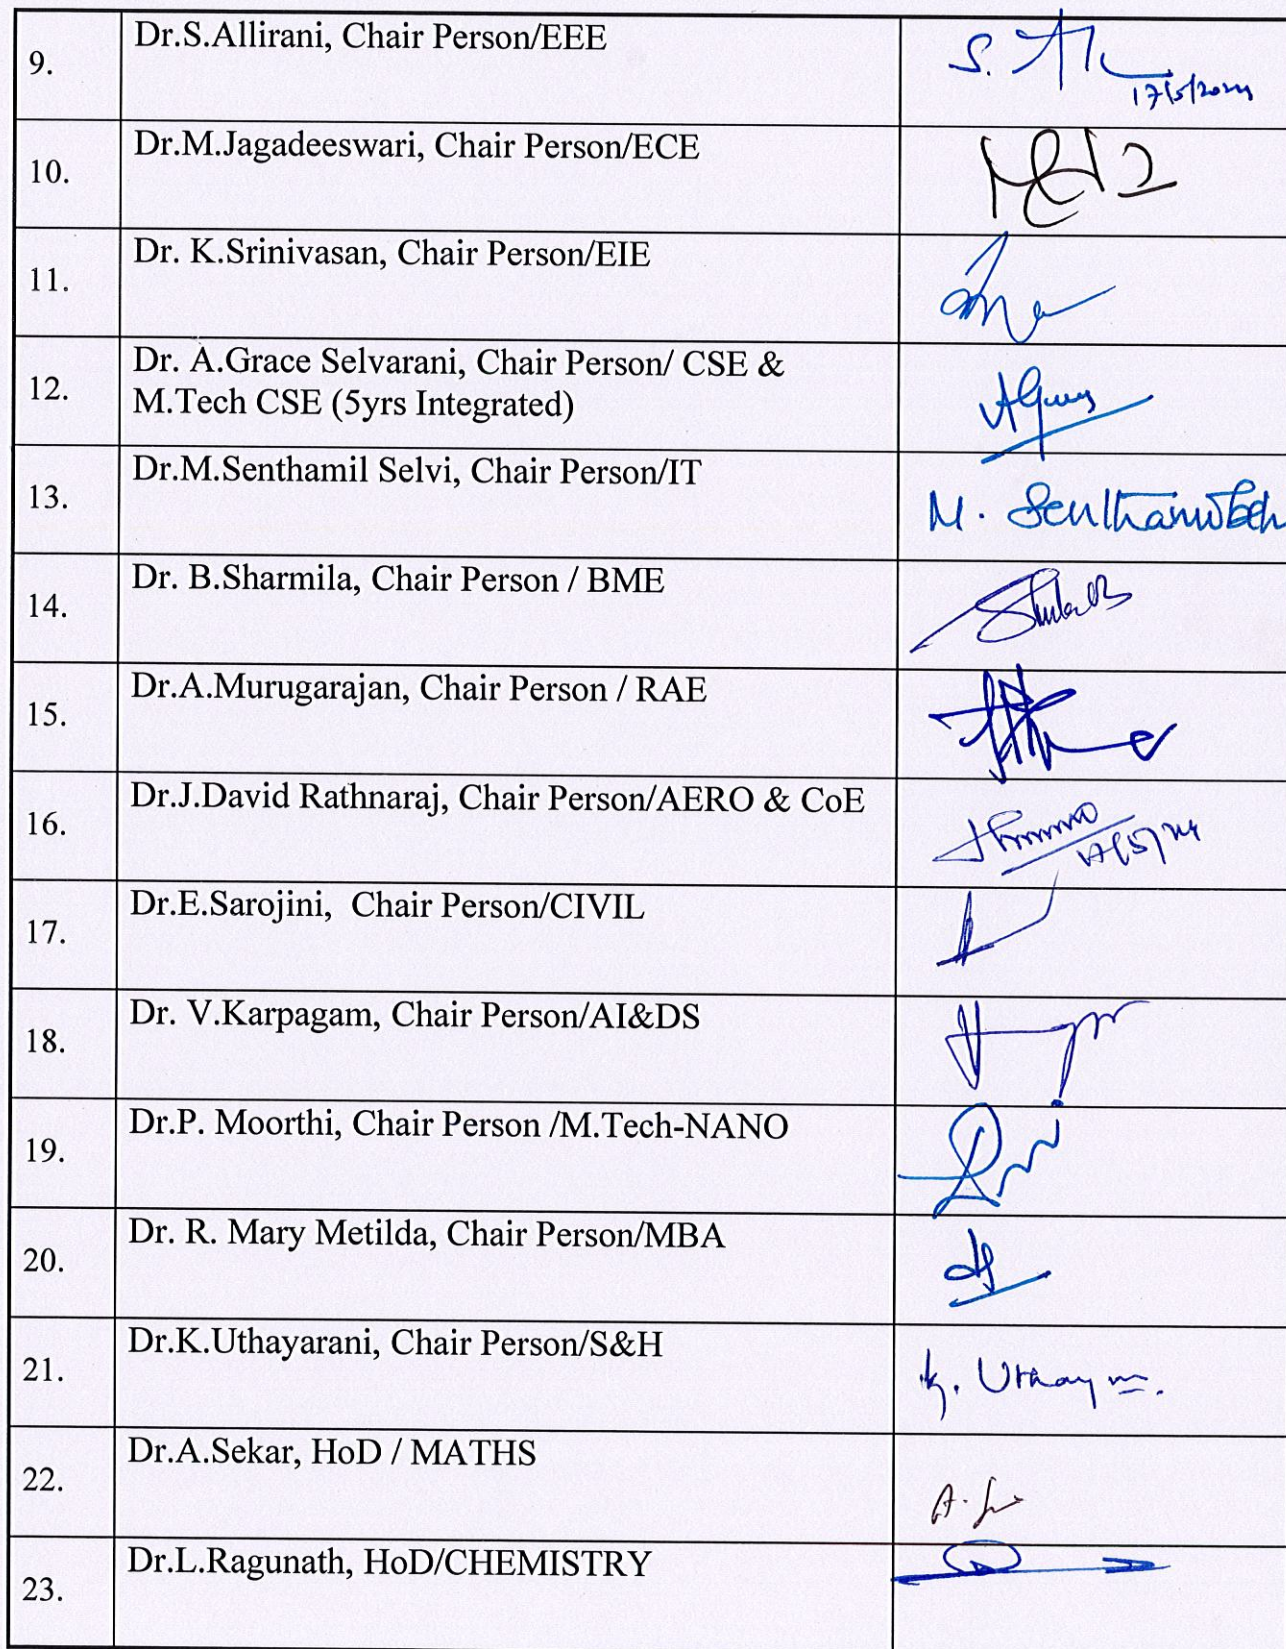 9. Dr.S.Allirani, Chair Person/EEE
S.
17/5/2024
10. Dr.M.Jagadeeswari, Chair Person/ECE
11. Dr. K.Srinivasan, Chair Person/EIE
12. Dr. A.Grace Selvarani, Chair Person/ CSE &
M.Tech CSE (5yrs Integrated)
13. Dr.M.Senthamil Selvi, Chair Person/IT
M.
14. Dr. B.Sharmila, Chair Person / BME
15. Dr.A.Murugarajan, Chair Person / RAE
16. Dr.J.David Rathnaraj, Chair Person/AERO & CoE
17/5/24
17. Dr.E.Sarojini, Chair Person/CIVIL
18. Dr. V.Karpagam, Chair Person/AI&DS
19. Dr.P. Moorthi, Chair Person /M.Tech-NANO
20. Dr. R. Mary Metilda, Chair Person/MBA
21. Dr.K.Uthayarani, Chair Person/S&H
K.
22. Dr.A.Sekar, HoD / MATHS
A.
23. Dr.L.Ragunath, HoD/CHEMISTRY